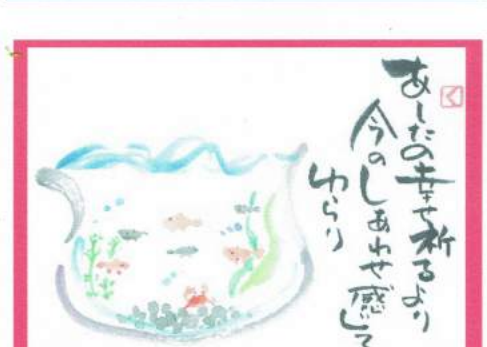 あしたの幸せ祈るより
今のしあわせ感じて
ゆらり
く